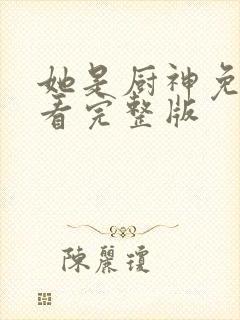 她是厨神免
看完整版
陳麗瓊